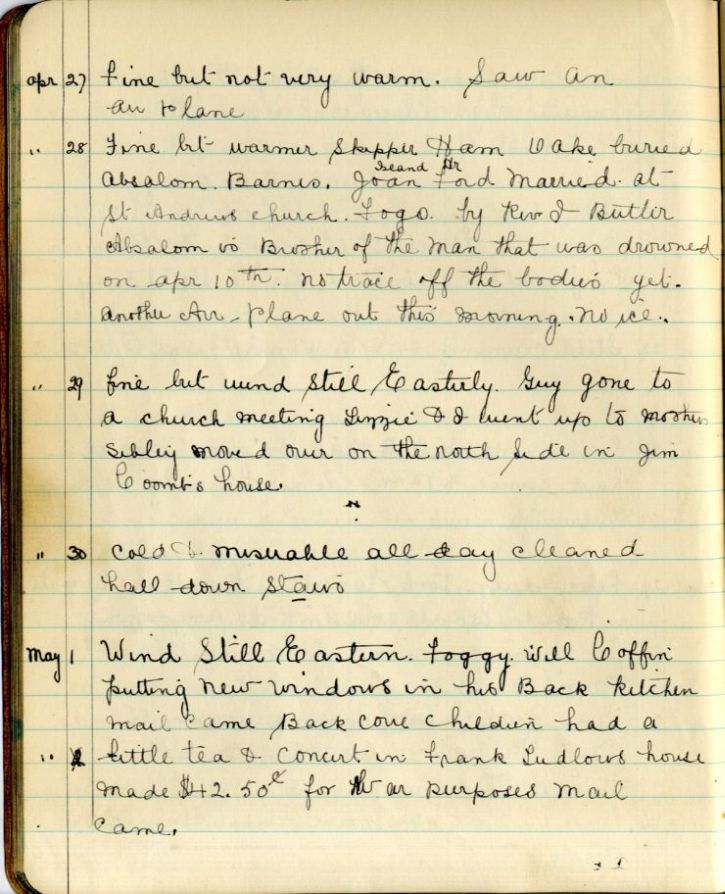 apr 27 Fine but not very warm. Saw an
air plane
" 28 Fine bt warmer Skipper Ham Wake buried
Island Hr
Absalom. Barnes. Joan Ford Married. at
St Andrews church. Fogo. by Rev I Butler
Absalom is Brother of the Man that was drowned
on apr 10th. no trace off the bodies yet.
another Air-plane out this morning. no ice..
" 29 fine but wind Still Easterly. Guy gone to
a church meeting Lizzie & I went up to mothers
Sibley moved over on the north Side in Jim
Coomb's house.
" 30 Cold & miserable all day cleaned
hall down Stairs
May 1 Wind Still Eastern. Foggy. Will Coffin
putting new windows in his Back kitchen
mail came Back cove children had a
" 2 little tea & Concert in Frank Ludlows house
made $42.50¢ for War purposes Mail
came.